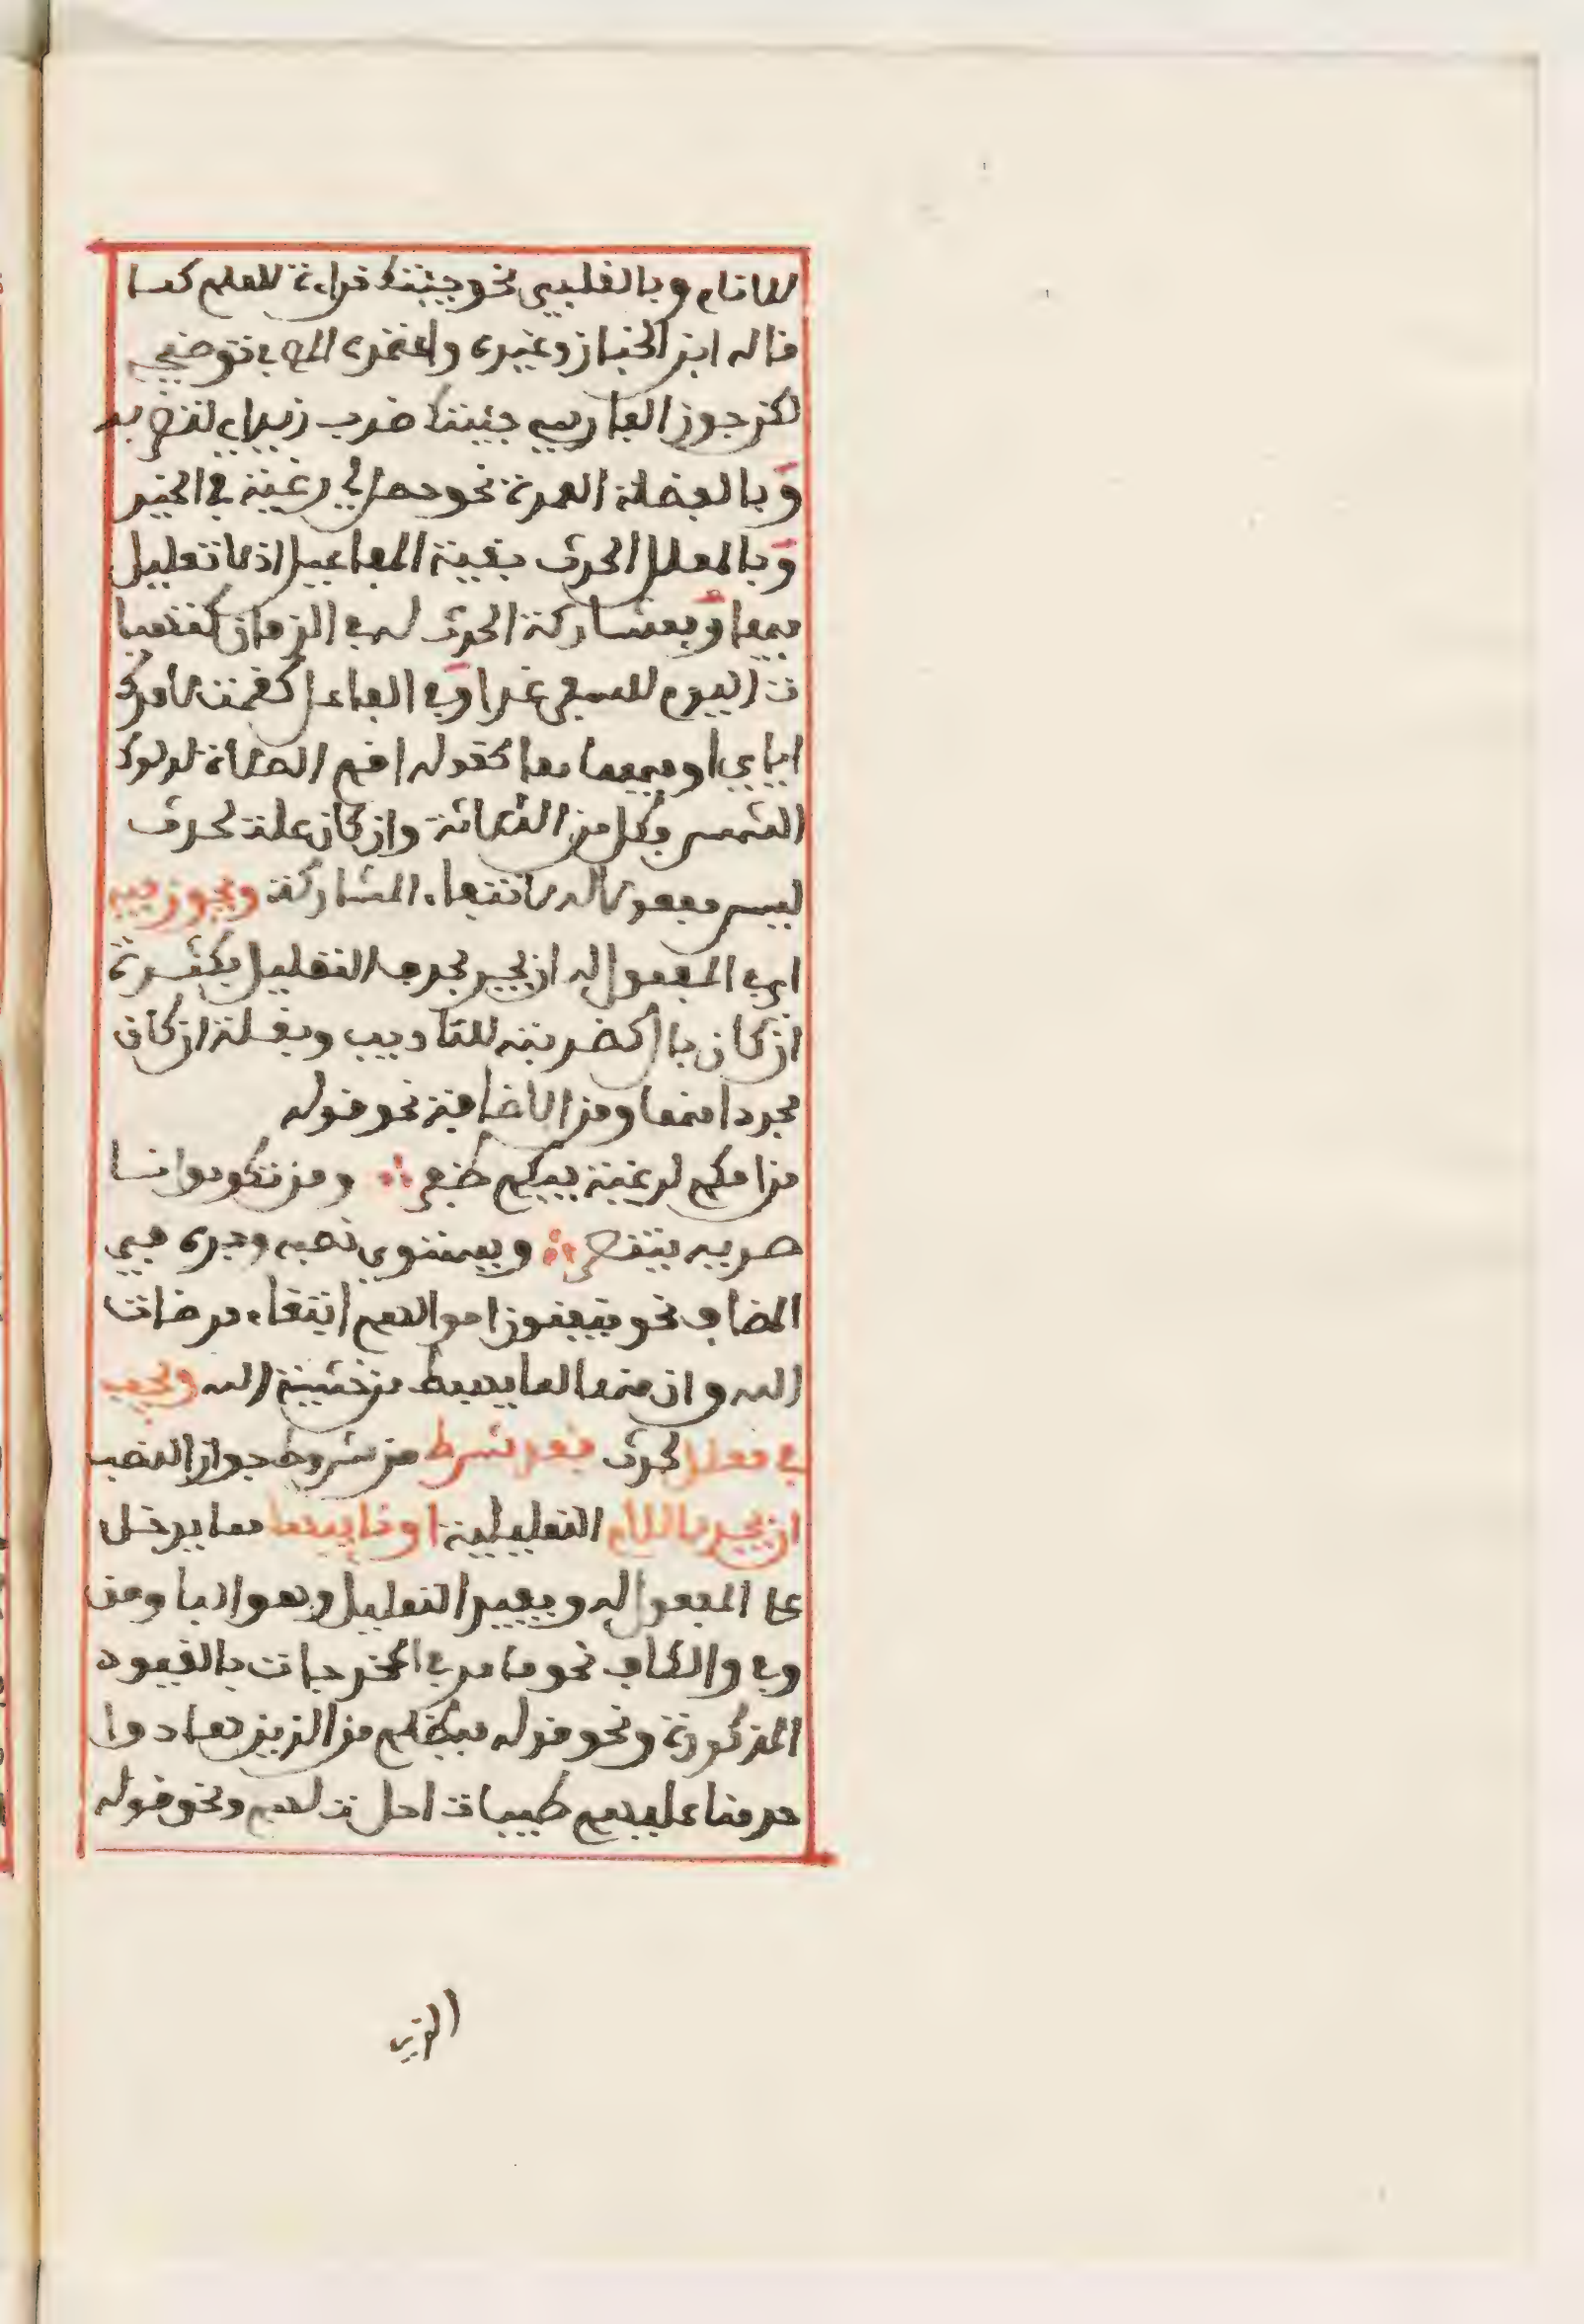 للانام وبالقلبي نحو جيتك قراءة للعلم كما
قاله ابن الخباز وغيره واعتمده المص في توضيحه
لكن جوز الفارسي جيتك ضرب زيد اي لتضربه
وبالفضلة العمدة نحو حصل لي رغبة في الخير
وبالمعلل لحدث بقية المفاعيل اذ لا تعليل
فيها وبمشاركة الحدث له في الزمان كتهيا
ت اليوم للسفر غدا وفي الفاعل كقمت لامرك
اياي او فيهما معا كقوله اقم الصلاة لدلوك
الشمس فكل من الثلاثة وان كان علة لحدث
ليس مفعولا له لانتفاء المشاركة ويجوز فيه
اي في المفعول له ان يجر بحرف التعليل بكثرة
ان كان بال كضربته للتاديب وبقلة ان كان
مجردا منها ومن الاضافة نحو قوله
من امكم لرغبة فيكم ظفر ∴ ومن تكونوا نا
صريه ينتصر ∴ ويستوي نصبه وجره في
المضاف نحو ينفقون اموالهم ابتغاء مرضات
الله وان منها لما يهبط من خشية الله ويجب
في معلل لحدث فقد شرط من شروط جواز النصب
ان يجر باللام التعليلية او نايبها مما يدخل
على المفعول له ويفيد التعليل وهو البا ومن
وفي والكاف نحو ما مر في المخرجات بالقيود
المذكورة ونحو قوله فبظلم من الذين هادوا
حرمنا عليهم طيبات احلت لهم ونحو قوله
الذي